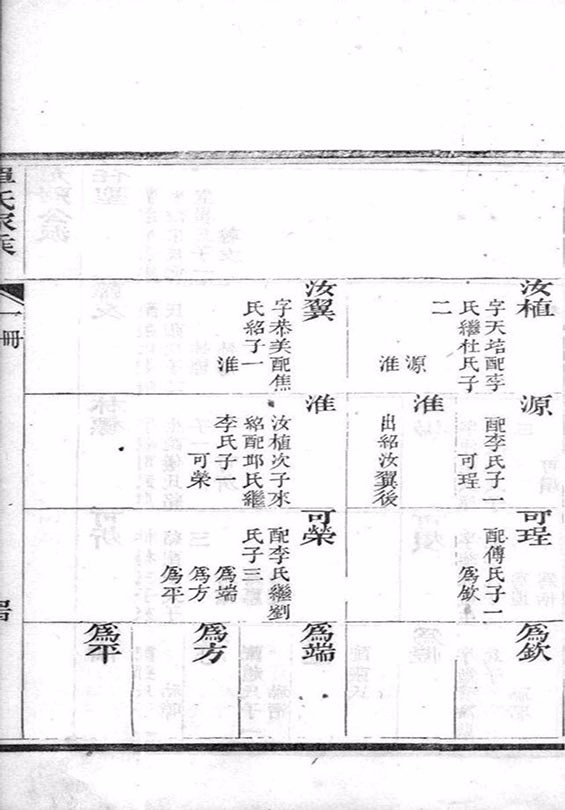 汝植
字天培配李
氏繼杜氏子
二
源
淮
汝翼
字恭美配焦
氏紹子一
淮
源
配李氏子一
可珵
淮
出紹汝翼後
淮
汝植次子來
紹配邶氏繼
李氏子一
可榮
可珵
配傅氏子一
為欽
可榮
配李氏繼劉
氏子三
為端
為方
為平
為欽
為端
為方
為平
氏家乘
一冊